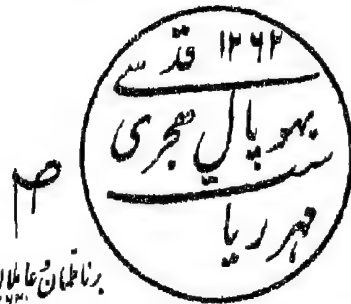 ۱۲۶۲ قدسے
بھوپال ھجری
مہر ریاست
برناظمان و عاملان